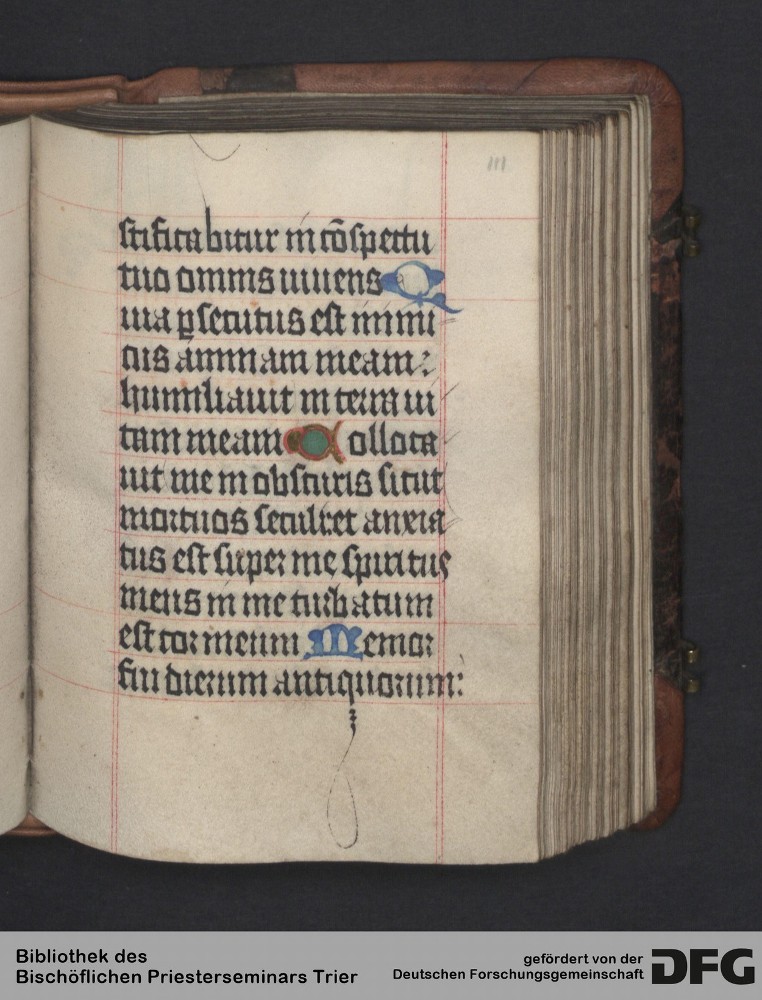 111
stificabitur in cōspectu
tuo omnis uiuens Q
uia ꝑsecutus est inimi
cus animam meam:
humiliauit in terra ui
tam meam Colloca
uit me in obscuris sicut
mortuos seculi: et anxia
tus est super me spiritus
meus in me turbatum
est cor meum Memor
fui dierum antiquorum:
Bibliothek des
Bischöflichen Priesterseminars Trier
gefördert von der
Deutschen Forschungsgemeinschaft
DFG